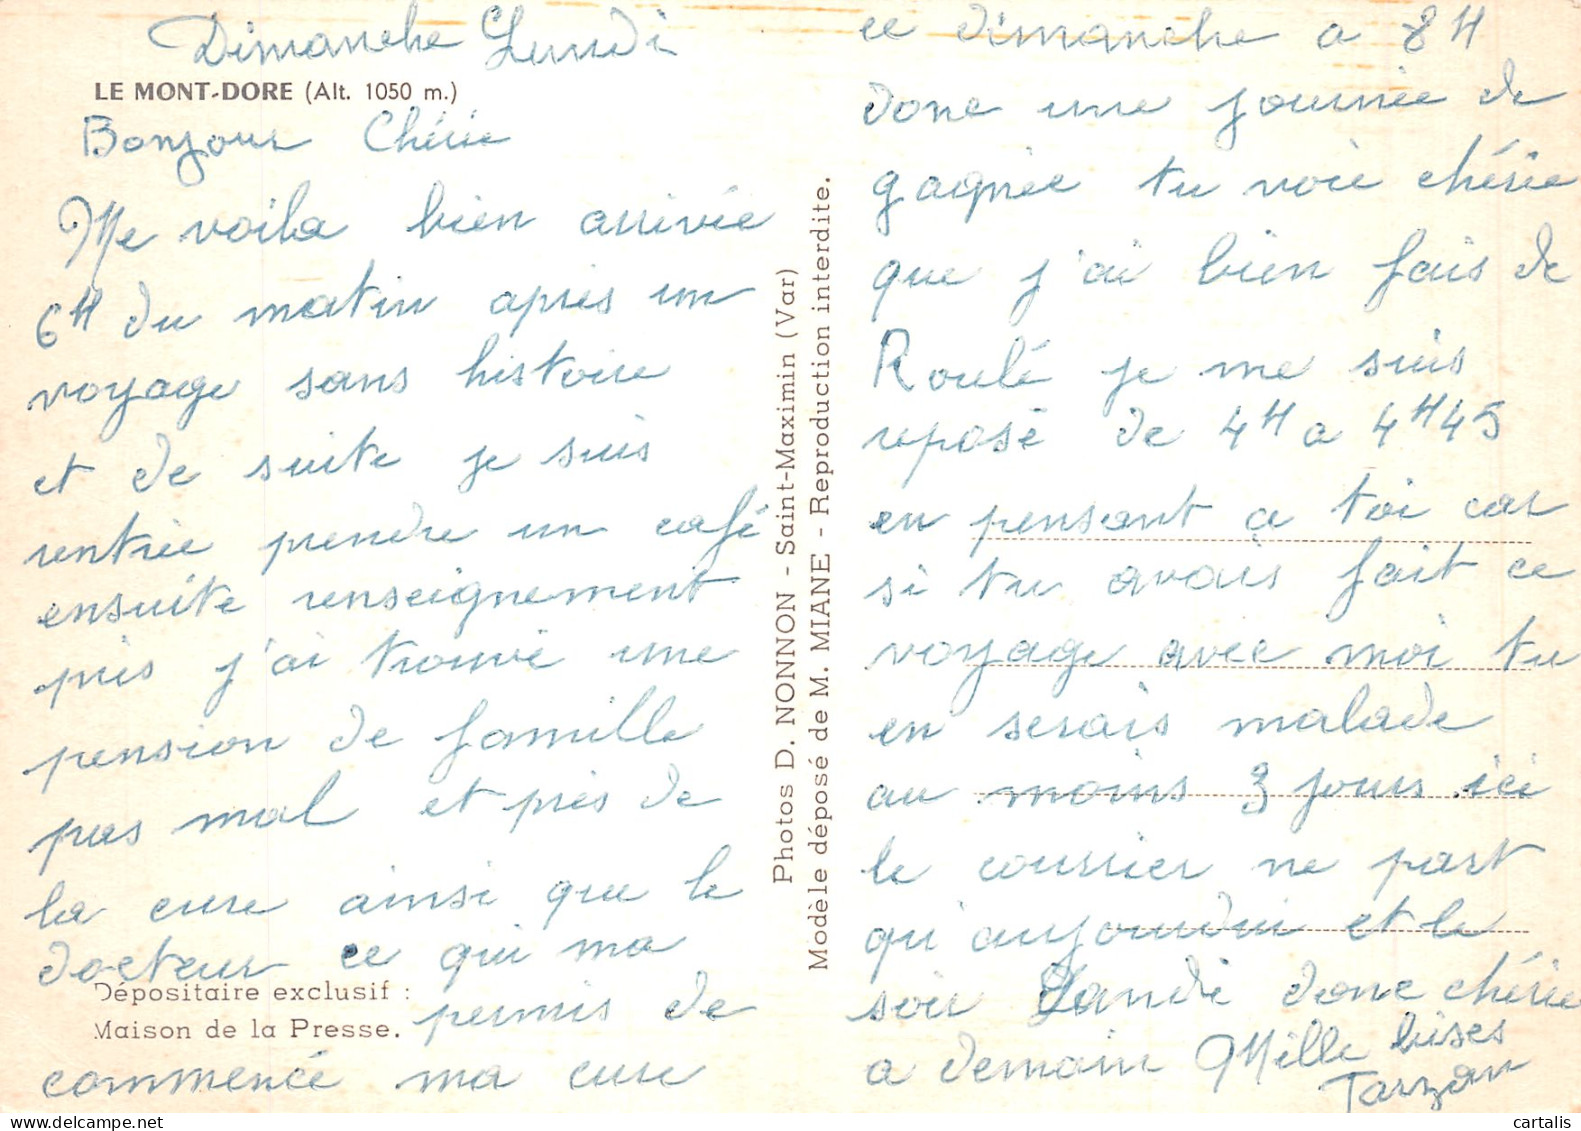 Dimanche Lundi
LE MONT-DORE (Alt. 1050 m.)
Bonjour Chérie
Me voila bien arrivée
6H du matin après un
voyage sans histoire
et de suite je suis
rentrée prendre un café
ensuite renseignement
puis j'ai trouvé une
pension de famille
pas mal et près de
la cure ainsi que le
docteur ce qui ma
Dépositaire exclusif :
permis de
Maison de la Presse.
commencé ma cure
Photos D. NONNON - Saint-Maximin (Var)
Modèle déposé de M. MIANE - Reproduction interdite.
ce dimanche a 8H
donc une journée de
gagnée tu voie chérie
que j'ai bien fais de
Roulé je me suis
reposé de 4H a 4H45
en pensant a toi car
si tu avais fait ce
voyage avec moi tu
en serais malade
au moins 3 jours ici
le courrier ne part
qu'aujourdui et le
soir Landi donc chérie
a demain Mille bises
Tarzan
cartalis